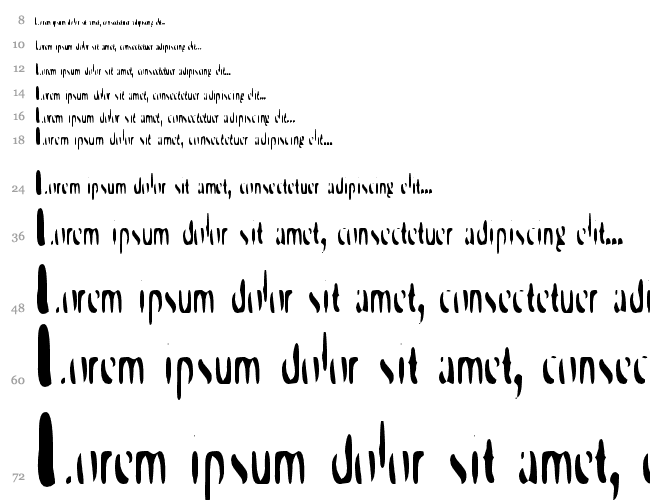 8 Lorem ipsum dolor sit amet, consectetuer adipiscing elit...
10 Lorem ipsum dolor sit amet, consectetuer adipiscing elit...
12 Lorem ipsum dolor sit amet, consectetuer adipiscing elit...
14 Lorem ipsum dolor sit amet, consectetuer adipiscing elit...
16 Lorem ipsum dolor sit amet, consectetuer adipiscing elit...
18 Lorem ipsum dolor sit amet, consectetuer adipiscing elit...
24 Lorem ipsum dolor sit amet, consectetuer adipiscing elit...
36 Lorem ipsum dolor sit amet, consectetuer adipiscing elit...
48 Lorem ipsum dolor sit amet, consectetuer adi
60 Lorem ipsum dolor sit amet, consec
72 Lorem ipsum dolor sit amet, c